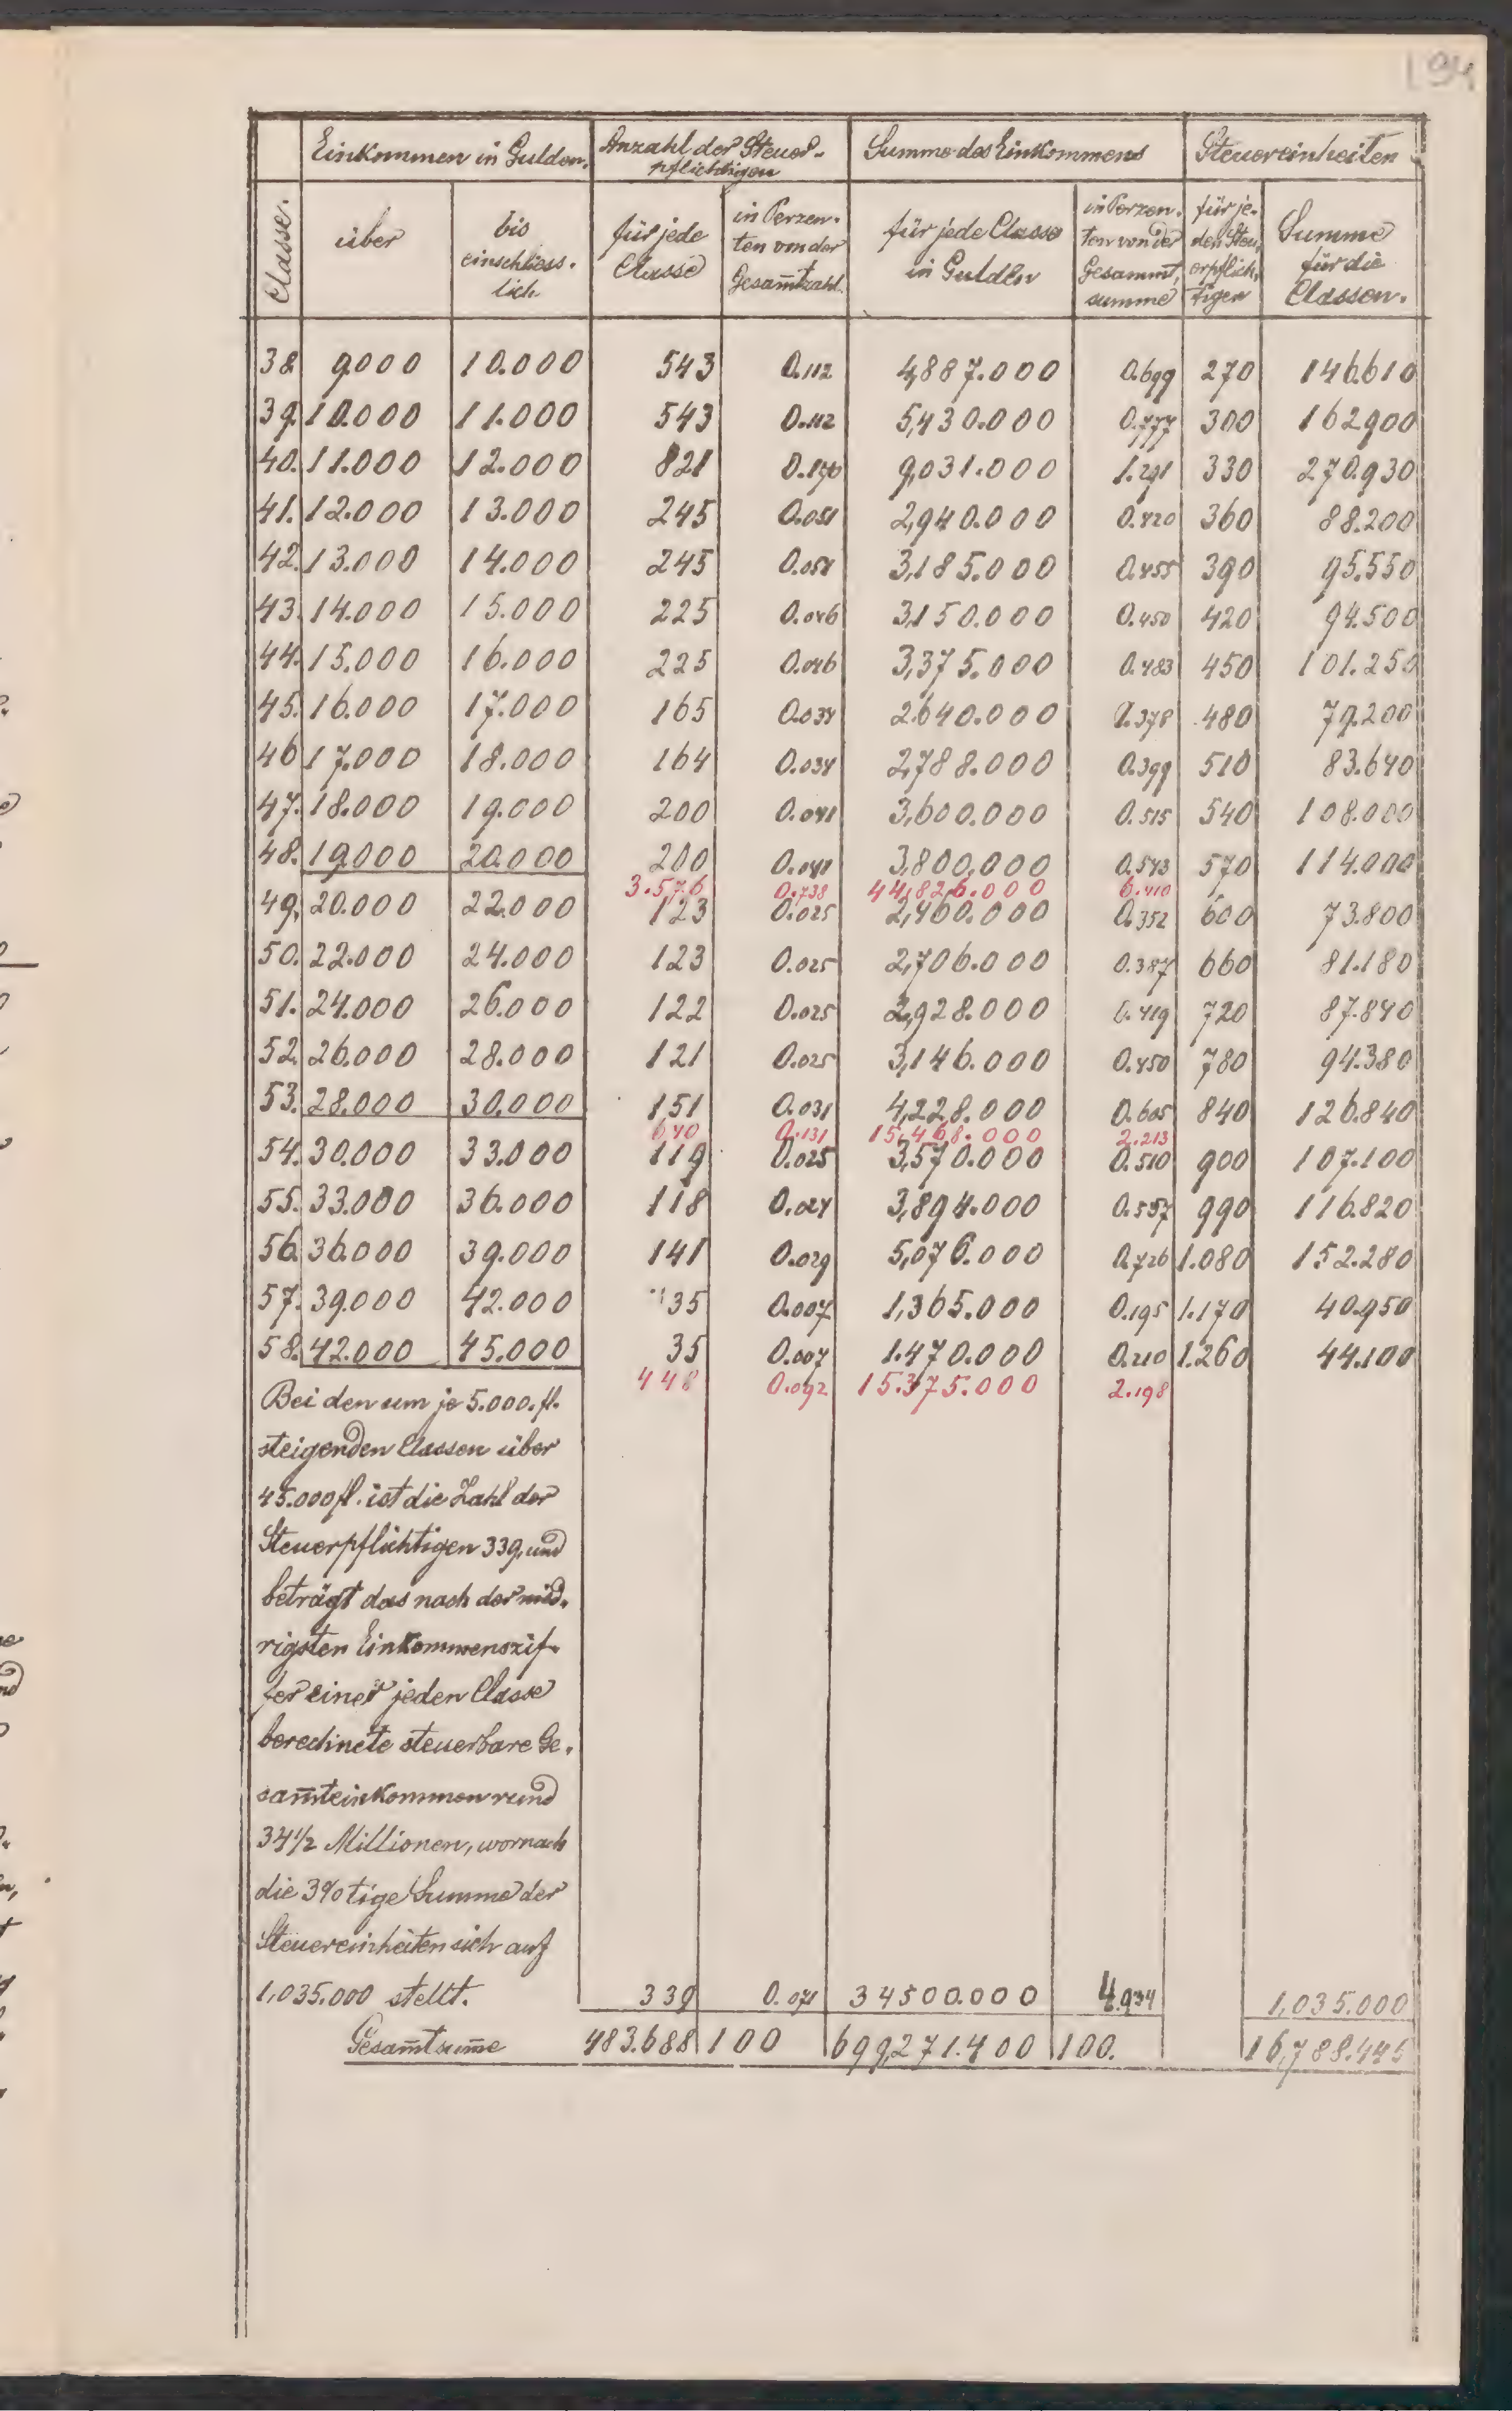 194
Einkommen in Gulden. Anzahl der Steuer- Summe des Einkommens Steuereinheiten
pflichtigen
Classe. über bis einschliess. lich für jede Classe in Perzen. ten von der Gesam̅tzahl. für jede Classe in Gulden in Perzen. ten von der Gesammt, summe für je. den Steu, erpflich, tigen Summe für die Classen.
38. 9000 10.000 543 0.112 4,887.000 0.699 270 146.610
39. 10.000 11.000 543 0.112 5,430.000 0.777 300 162900
40. 11.000 12.000 821 0.170 9,031.000 1.291 330 270.930
41. 12.000 13.000 245 0.051 2,940.000 0.420 360 88.200
42. 13.000 14.000 245 0.051 3,185.000 0.455 390 95.550
43. 14.000 15.000 225 0.046 3,150.000 0.450 420 94.500
44. 15.000 16.000 225 0.046 3,375.000 0.483 450 101.250
45. 16.000 17.000 165 0.034 2.640.000 0.378 480 79.200
46 17.000 18.000 164 0.034 2,788.000 0.399 510 83.640
47. 18.000 19.000 200 0.041 3,600.000 0.515 540 108.000
48. 19000 20.000 200 0.041 3,800,000 0.543 570 114.000
3.576 0.738 44,826.000 6.410
49. 20.000 22.000 123 0.025 2,460.000 0.352 600 73.800
50. 22.000 24.000 123 0.025 2,706.000 0.387 660 81.180
51. 24.000 26.000 122 0.025 2,928.000 0.419 720 87.840
52. 26.000 28.000 121 0.025 3,146.000 0.450 780 94.380
53. 28.000 30.000 151 0.031 4,228.000 0.605 840 126.840
640 0.131 15,468.000 2.213
54. 30.000 33.000 119 0.025 3,570.000 0.510 900 107.100
55. 33.000 36.000 118 0.024 3,894.000 0.557 990 116.820
56. 36.000 39.000 141 0.029 5,076.000 0.726 1.080 152.280
57. 39.000 42.000 35 0.007 1,365.000 0.195 1.170 40.950
58. 42.000 45.000 35 0.007 1.470.000 0.210 1.260 44.100
448 0.092 15.375.000 2.198
Bei den um je 5.000. fl.
steigenden Classen über
45.000 fl. ist die Zahl der
Steuerpflichtigen 339, und
beträgt das nach der nied.
rigsten Einkommenszif-
fer einer jeden Classe
berechnete steuerbare Ge.
sam̅teinkommen rund
34½ Millionen, wornach
die 3% tige Summe der
Steuereinheiten sich auf
1,035.000 stellt. 339 0.071 34500.000 4.934 1,035.000
Gesam̅tsum̅e 483.688 100 699,271.400 100. 16,788.445